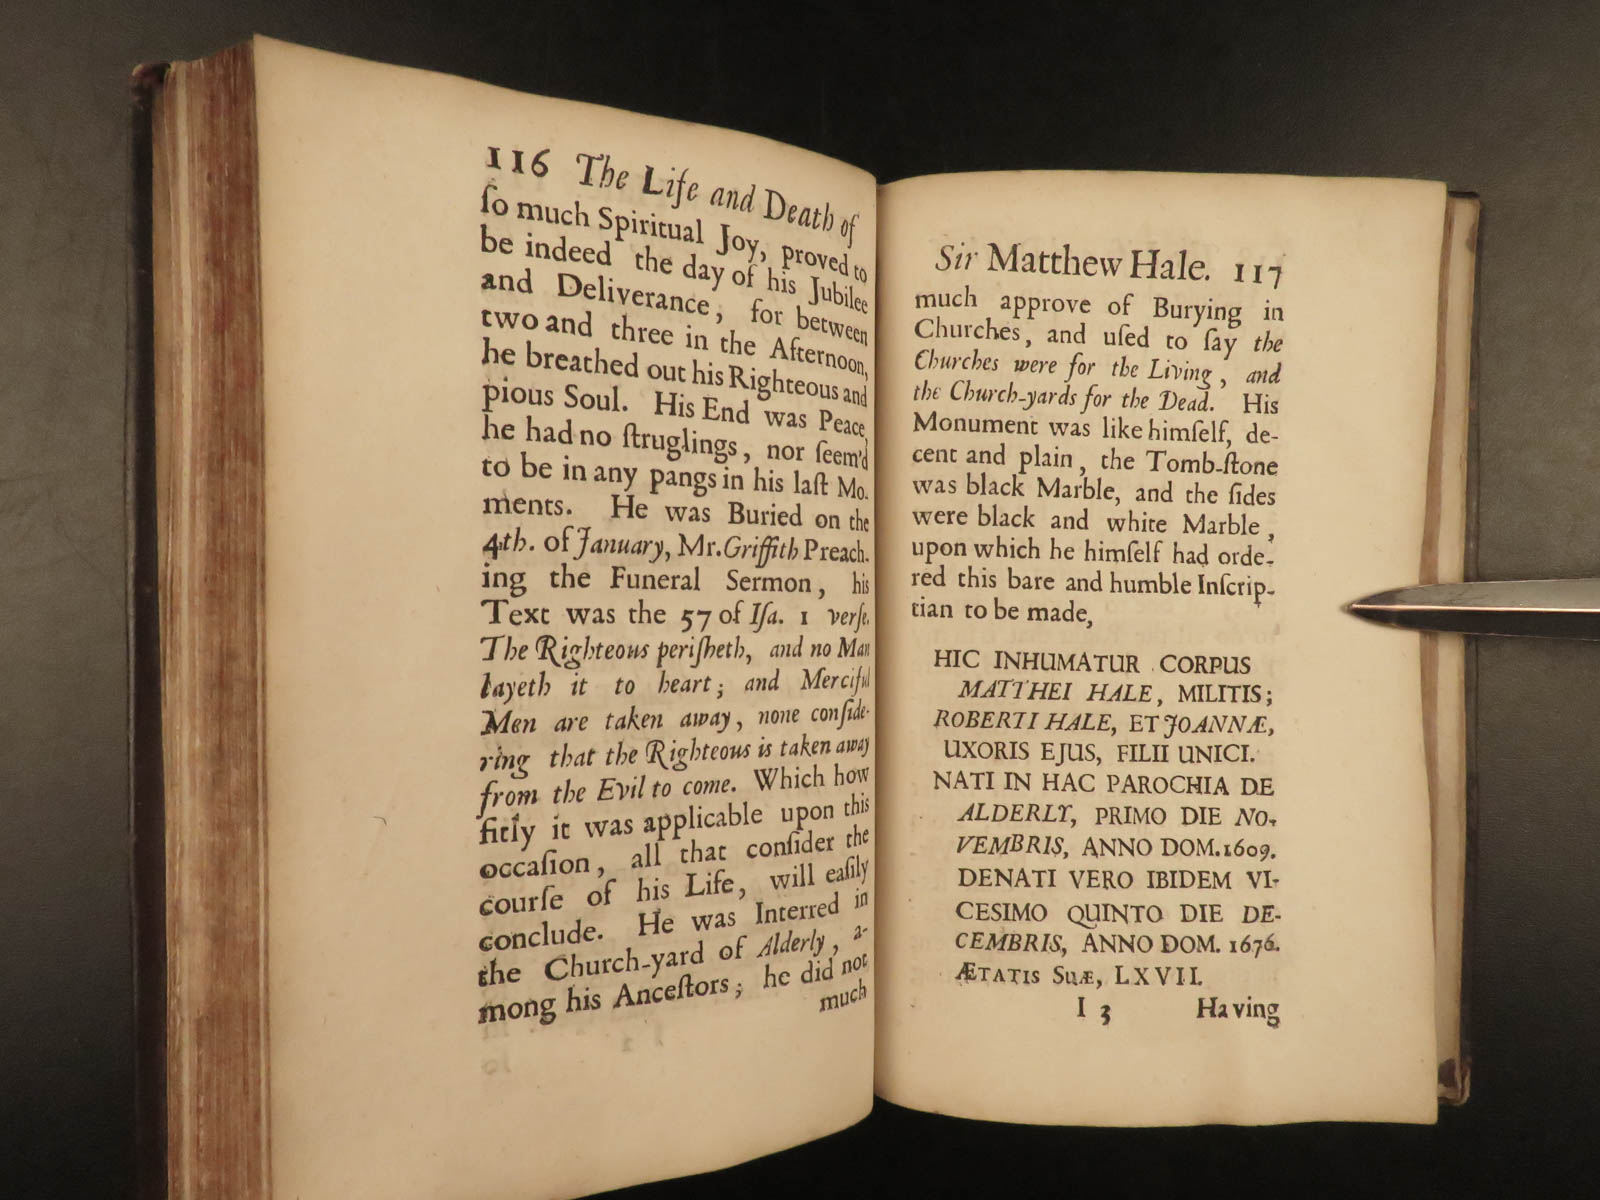 116 The Life and Death of
ſo much Spiritual Joy, proved to
be indeed the day of his Jubilee
and Deliverance, for between
two and three in the Afternoon,
he breathed out his Righteous and
pious Soul. His End was Peace,
he had no ſtruglings, nor ſeem'd
to be in any pangs in his laſt Mo-
ments. He was Buried on the
4th. of January, Mr. Griffith Preach-
ing the Funeral Sermon, his
Text was the 57 of Iſa. 1 verſe.
The Righteous periſheth, and no Man
layeth it to heart; and Merciful
Men are taken away, none conſide-
ring that the Righteous is taken away
from the Evil to come. Which how
fitly it was applicable upon this
occaſion, all that conſider the
courſe of his Life, will eaſily
conclude. He was Interred in
the Church-yard of Alderly, a-
mong his Anceſtors; he did not
much
Sir Matthew Hale. 117
much approve of Burying in
Churches, and uſed to ſay the
Churches were for the Living, and
the Church-yards for the Dead. His
Monument was like himſelf, de-
cent and plain, the Tomb-ſtone
was black Marble, and the ſides
were black and white Marble,
upon which he himſelf had orde-
red this bare and humble Inſcrip-
tian to be made,
HIC INHUMATUR CORPUS
MATTHEI HALE, MILITIS;
ROBERTI HALE, ET JOANNÆ,
UXORIS EJUS, FILII UNICI.
NATI IN HAC PAROCHIA DE
ALDERLY, PRIMO DIE NO-
VEMBRIS, ANNO DOM. 1609.
DENATI VERO IBIDEM VI-
CESIMO QUINTO DIE DE-
CEMBRIS, ANNO DOM. 1676.
ÆTATIS SUÆ, LXVII.
I 3 Having